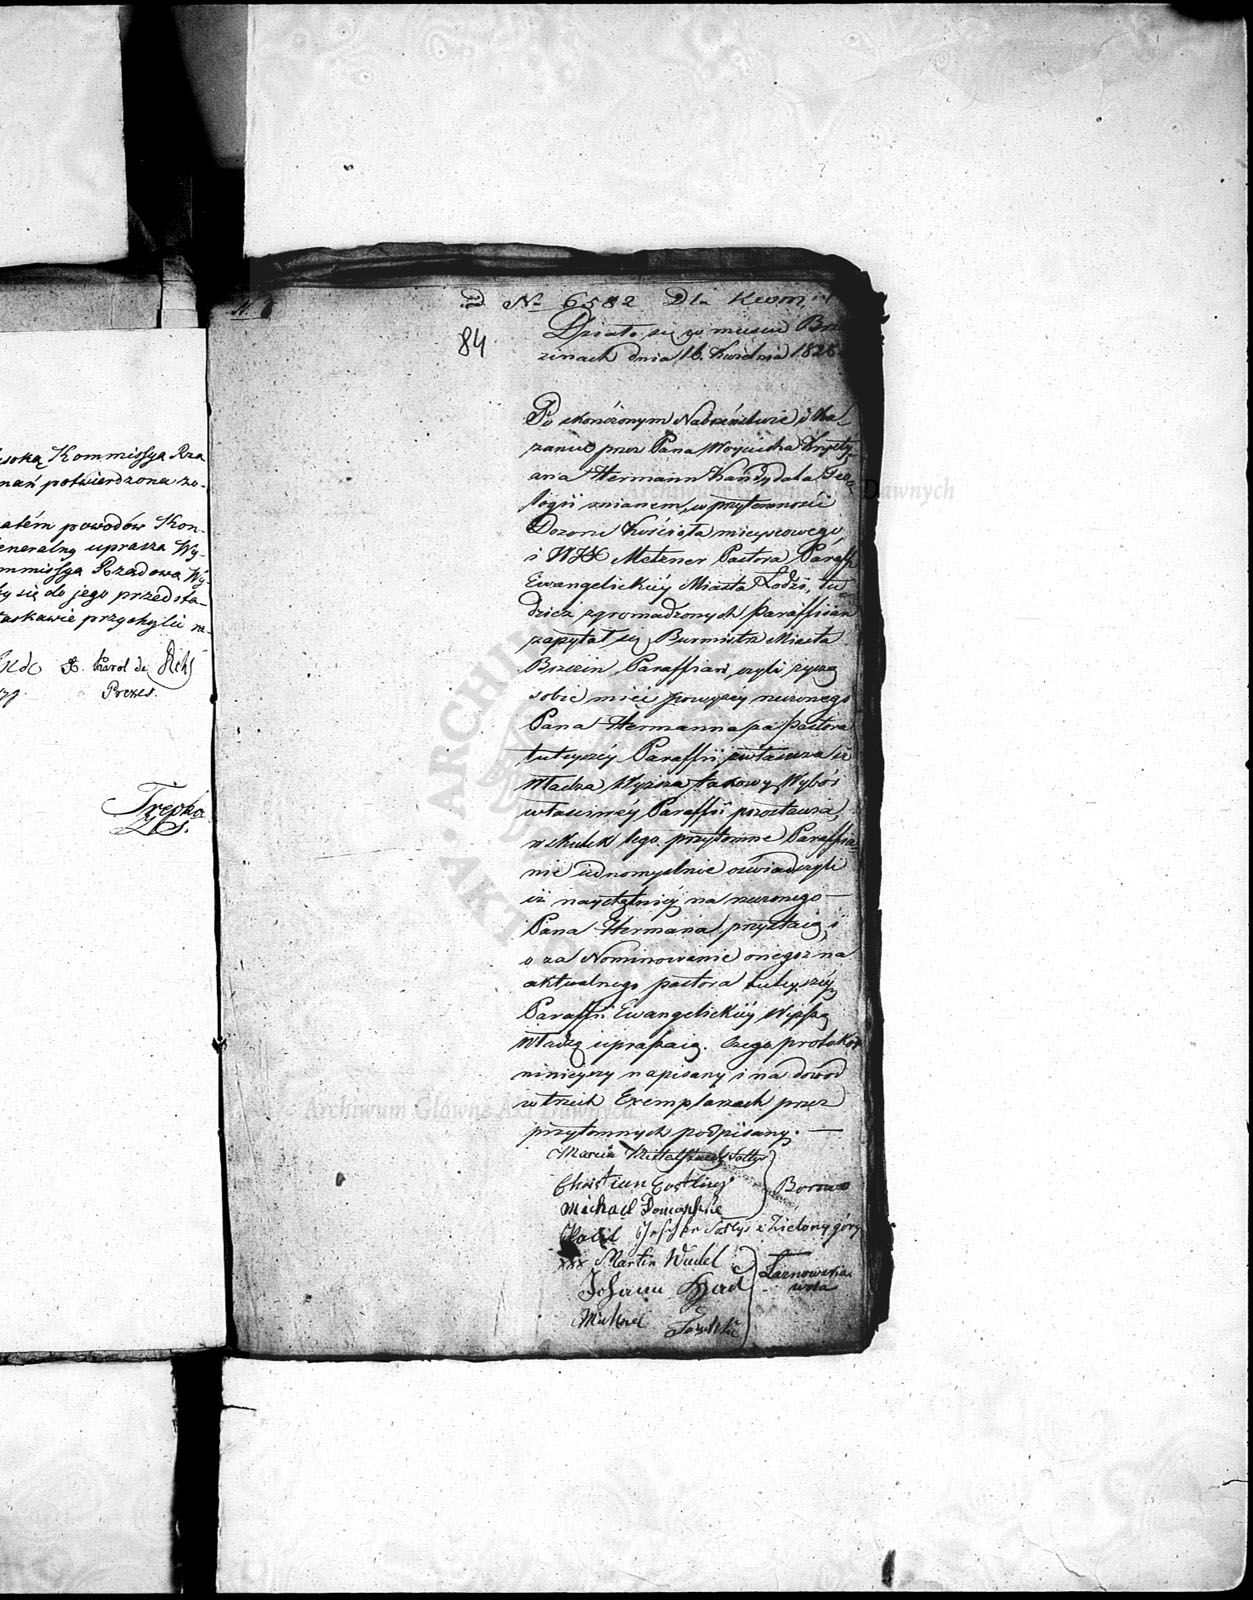 isoką Kommissya Rzą
nań potwierdzona zo-
atém powodów Kon-
eneralny uprasza Wy-
mmissya Rządowa Wy-
y się do jego przedsta-
askawie przychylić ra-
X. Karol de
Prezes.
Trepka
N. 8
D No 6582 Dla
84
Działo się w mieście Brze
zinach dnia 16. Kwietnia 1828.
Po skończonym Nabożeństwie i Ka
zaniu przez Pana Woyciecha Krysty-
ana Hermann Kandydata Teo-
logii mianem, w przytomności
Dozoru Kościoła mieyscowego,
i Metzner Pastora Paraffii
Ewangelickiéy Miasta Łodzi, tu-
dzież zgromadzonych Paraffian
zapytał się Burmistrz Miasta
Brzezin Paraffian, czyli życzą
sobie mieć powyżéy rzeczonego
Pana Hermanna za Pastora
tuteyszéy Paraffii, zwłaszcza iż
Władza Wyższa takowy Wybór
właściwéy Paraffii pozostawia,
w skutek tego przytomne Paraffia-
nie iednomyślnie oświadczyli
iż naychętniéy na rzeczonego
Pana Hermana przystaią, i
o za Nominowanie onegoż na
aktualnego pastora tuteyszéy
Paraffii Ewangelickiéy Wyższą
Władzę upraszaią. Czego protokół
ninieyszy napisany i na dowód
w trzech Exemplarzach przez
przytomnych podpisany.
Marcin Sołtys
Christian
Michael Domanske
Sołtys z Zielony góry
xxx Martin Wudel
Johann
Tarnowska
wola
Michael
Archiwum Główne Akt Dawnych
Archiwum Główne Akt Dawnych